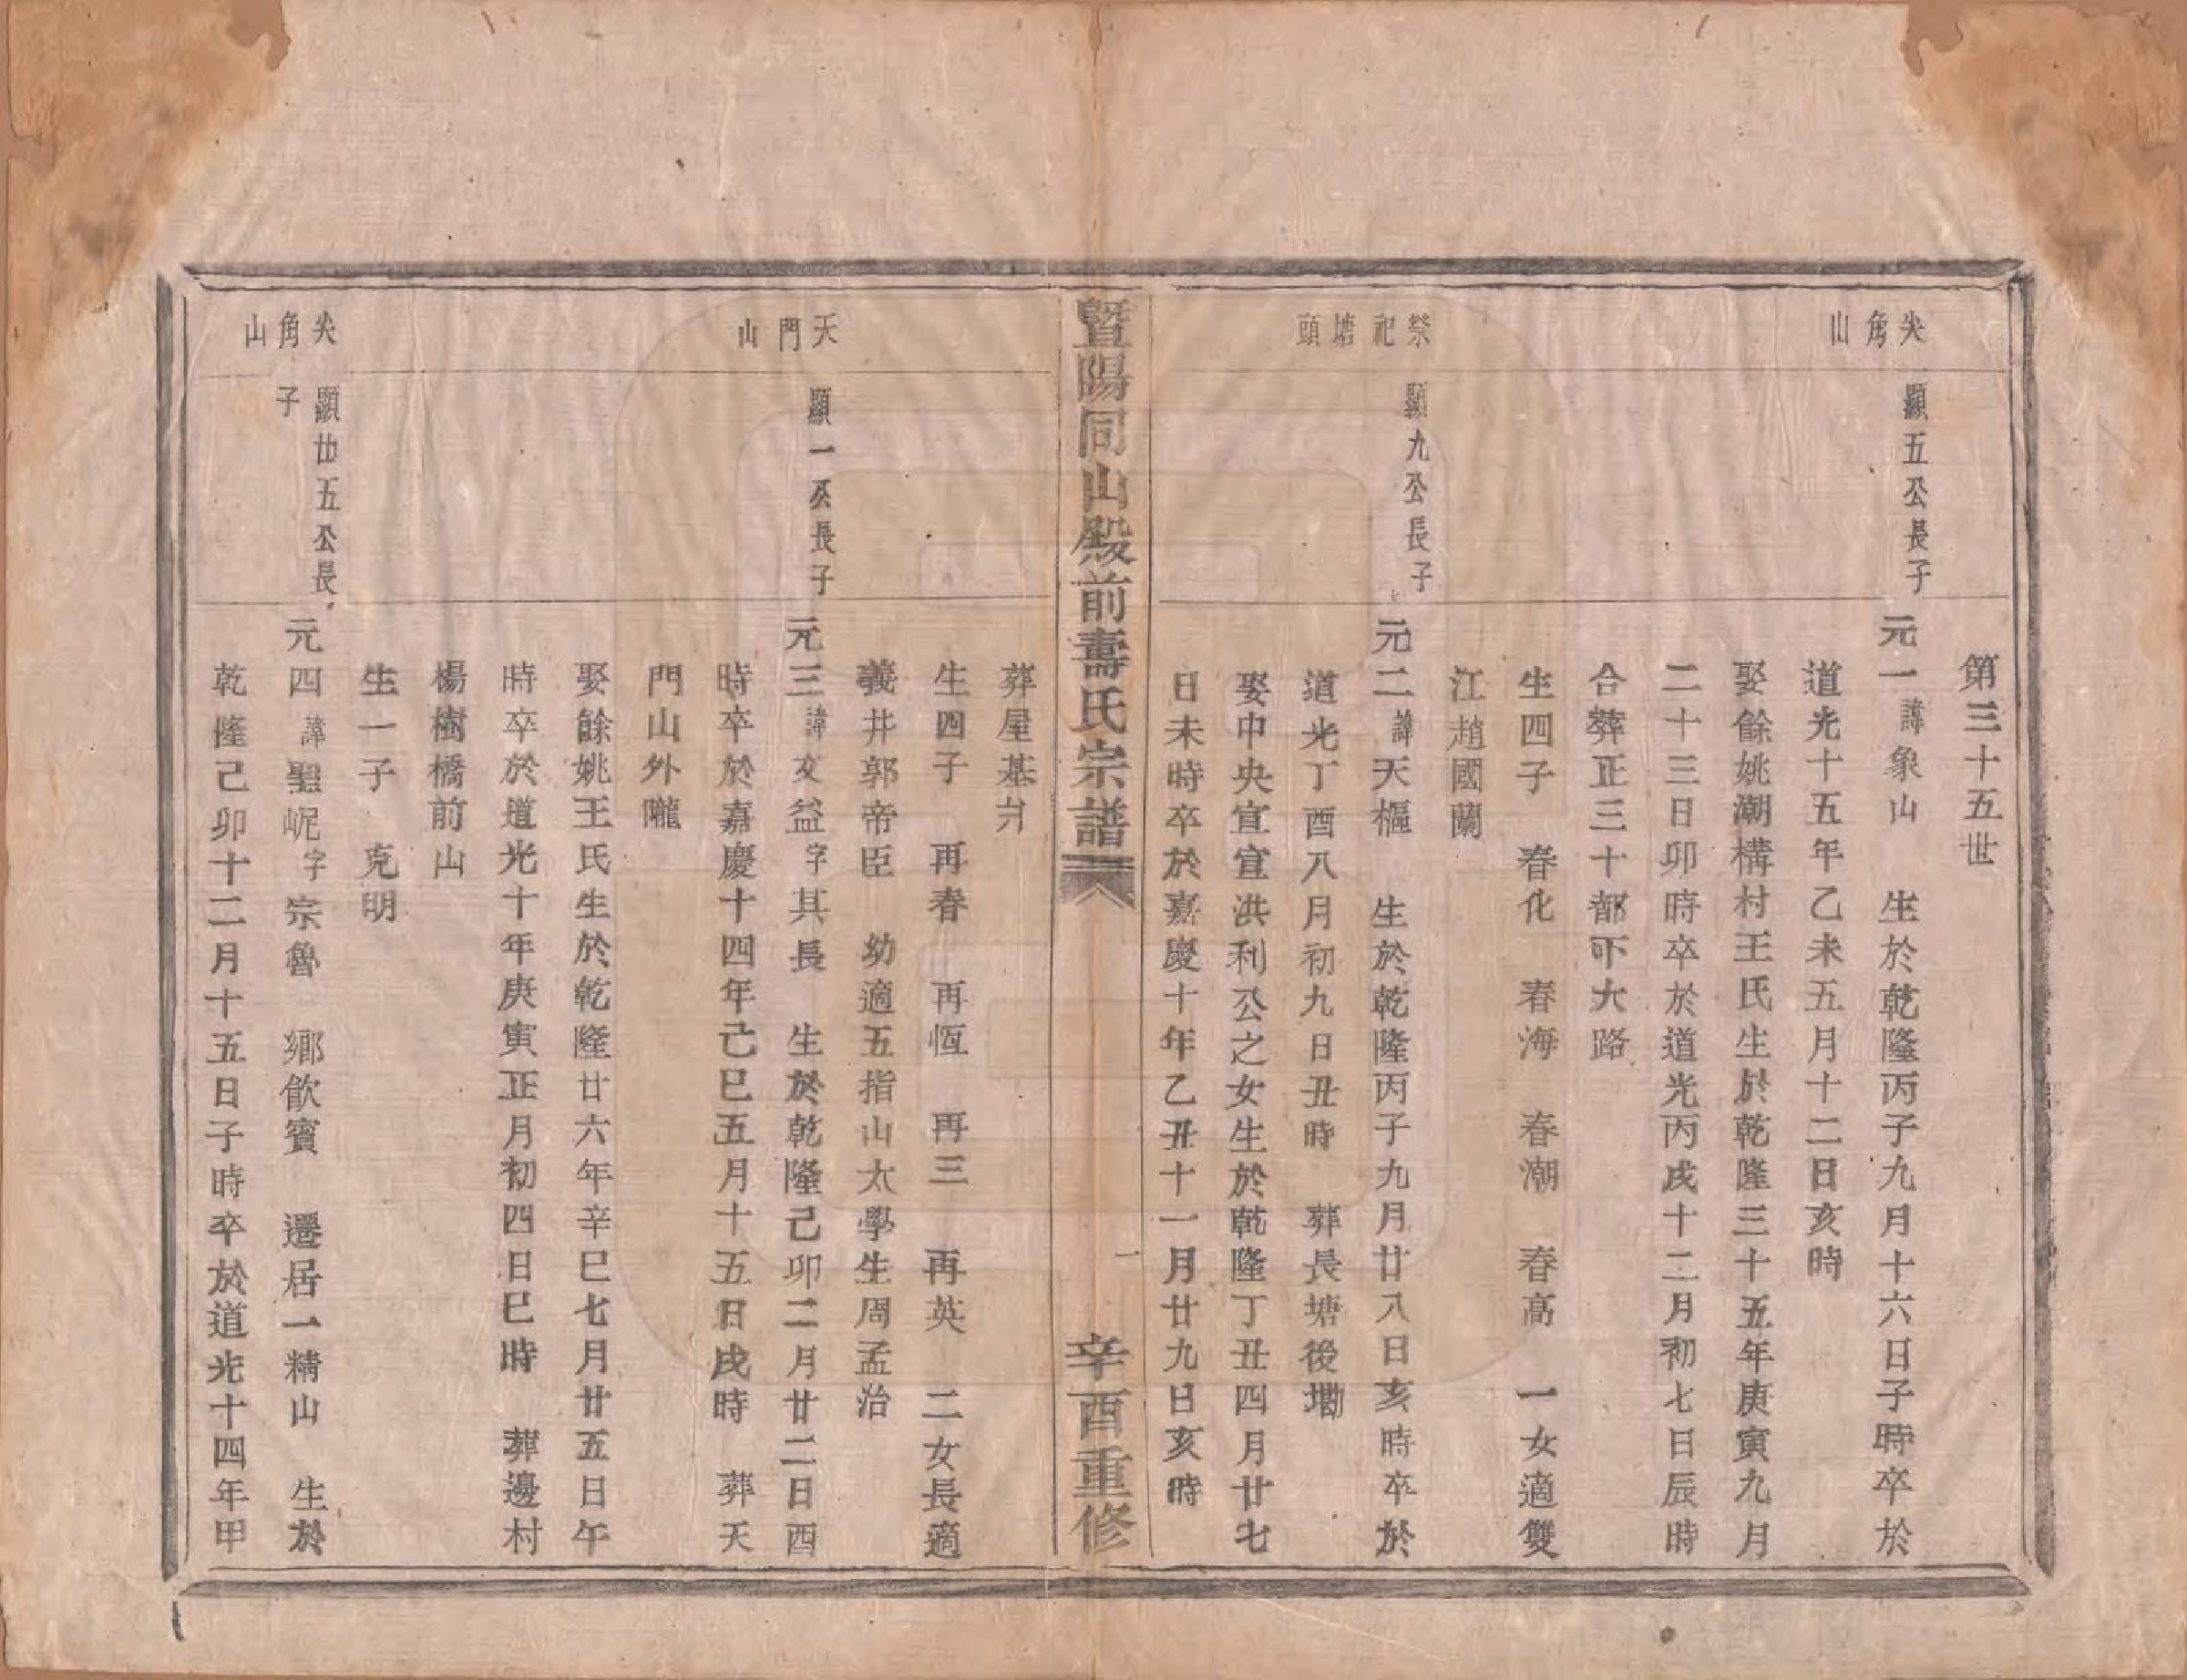 第三十五世
尖角山
顯五公長子
元一諱象山 生於乾隆丙子九月十六日子時卒於
道光十五年乙未五月十二日亥時
娶餘姚潮構村王氏生於乾隆三十五年庚寅九月
二十三日卯時卒於道光丙戌十二月初七日辰時
合葬正三十都下大路
生四子 春化 春海 春潮 春高 一女適雙
江趙國蘭
祭祀塘頭
顯九公長子
元二諱天樞 生於乾隆丙子九月廿八日亥時卒於
道光丁酉八月初九日丑時 葬長塘後墈
娶中央宣宣洪利公之女生於乾隆丁丑四月廿七
日未時卒於嘉慶十年乙丑十一月廿九日亥時
暨陽同山殿前壽氏宗譜
一
辛酉重修
葬屋基爿
生四子 再春 再恆 再三 再英 二女長適
義井郭帝臣 幼適五指山太學生周孟治
天門山
顯一公長子
元三諱文益字其長 生於乾隆己卯二月廿二日酉
時卒於嘉慶十四年己巳五月十五日戌時 葬天
門山外隴
娶餘姚王氏生於乾隆廿六年辛巳七月廿五日午
時卒於道光十年庚寅正月初四日巳時 葬邊村
楊樹橋前山
生一子 克明
尖角山
顯廿五公長
子
元四諱聖昵字宗魯 鄉飲賓 遷居一精山 生於
乾隆己卯十二月十五日子時卒於道光十四年甲